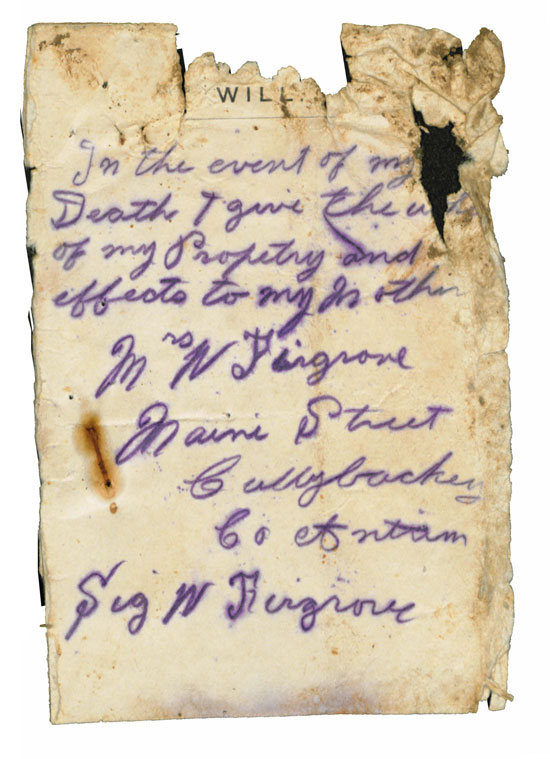 WILL.
In the event of my
Death I give the
of my Propetry and
effects to my Mother
Mrs W Firgrove
Maine Street
Cullybackey
Co Antrim
Sig W Firgrove